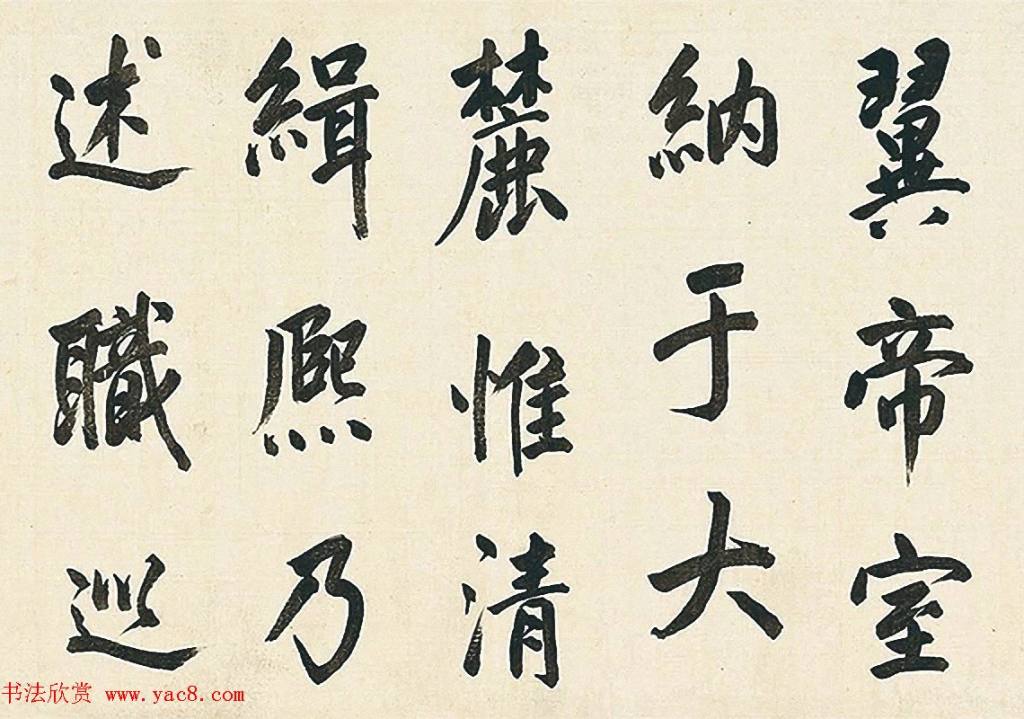 翼帝室
納于大
麓惟清
緝熈乃
述職巡
书法欣赏 www.yac8.com